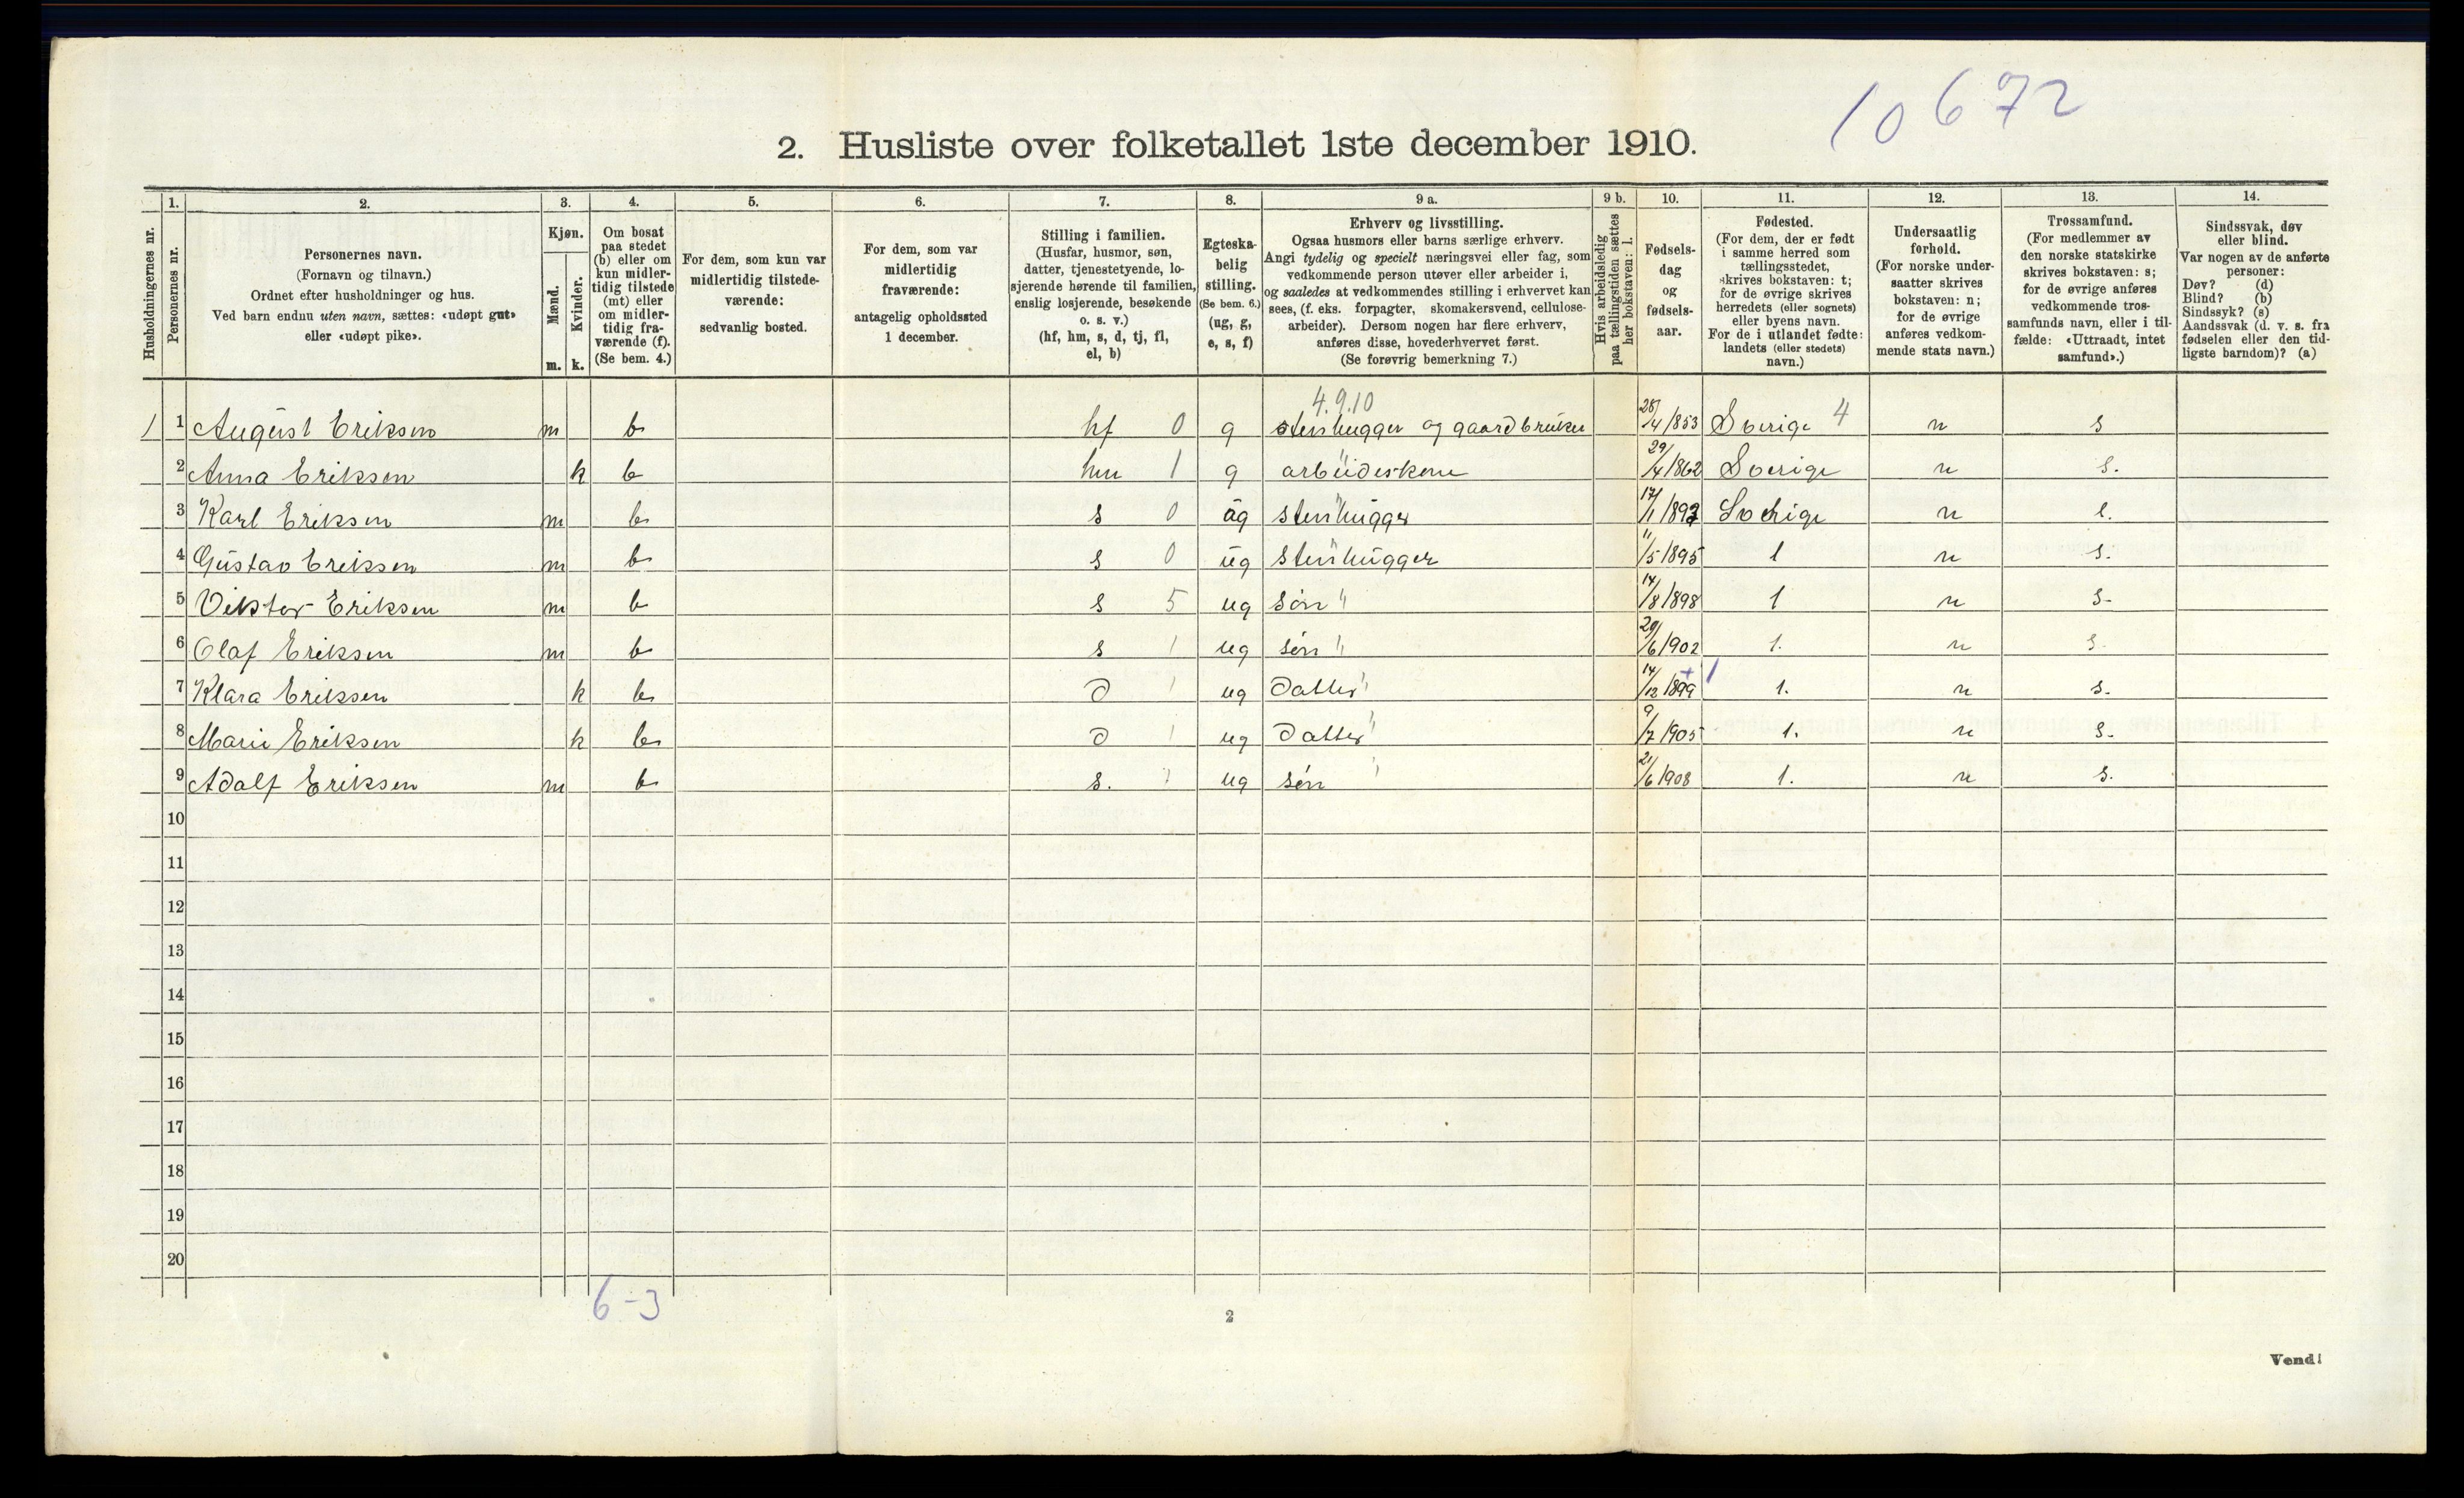 10672
2. Husliste over folketallet 1ste december 1910.
Husholdningernes nr.
1.
Personernes nr.
2.
Personernes navn.
(Fornavn og tilnavn.)
Ordnet efter husholdninger og hus.
Ved barn endnu uten navn, sættes: «udøpt gut»
eller «udøpt pike».
3.
Kjøn.
Mænd.
Kvinder.
m. k.
4.
Om bosat
paa stedet
(b) eller om
kun midler-
tidig tilstede
(mt) eller
om midler-
tidig fra-
værende (f).
(Se bem. 4.)
5.
For dem, som kun var
midlertidig tilstede-
værende:
sedvanlig bosted.
6.
For dem, som var
midlertidig
fraværende:
antagelig opholdssted
1 december.
7.
Stilling i familien.
(Husfar, husmor, søn,
datter, tjenestetyende, lo-
sjerende hørende til familien,
enslig losjerende, besøkende
o. s. v.)
(hf, hm, s, d, tj, fl,
el, b)
8.
Egteska-
belig
stilling.
(Se bem. 6.)
(ug, g,
e, s, f)
9 a.
Erhverv og livsstilling.
Ogsaa husmors eller barns særlige erhverv.
Angi tydelig og specielt næringsvei eller fag, som
vedkommende person utøver eller arbeider i,
og saaledes at vedkommendes stilling i erhvervet kan
sees, (f. eks. forpagter, skomakersvend, cellulose-
arbeider). Dersom nogen har flere erhverv,
anføres disse, hovederhvervet først.
(Se forøvrig bemerkning 7.)
9 b.
Hvis arbeidsledig
paa tællingstiden sættes
her bokstaven: l.
10.
Fødsels-
dag
og
fødsels-
aar.
11.
Fødested.
(For dem, der er født
i samme herred som
tællingsstedet,
skrives bokstaven: t;
for de øvrige skrives
herredets (eller sognets)
eller byens navn.
For de i utlandet fødte:
landets (eller stedets)
navn.)
12.
Undersaatlig
forhold.
(For norske under-
saatter skrives
bokstaven: n;
for de øvrige
anføres vedkom-
mende stats navn.)
13.
Trossamfund.
(For medlemmer av
den norske statskirke
skrives bokstaven: s;
for de øvrige anføres
vedkommende tros-
samfunds navn, eller i til-
fælde: «Uttraadt, intet
samfund».)
14.
Sindssvak, døv
eller blind.
Var nogen av de anførte
personer:
Døv? (d)
Blind? (b)
Sindssyk? (s)
Aandssvak (d. v. s. fra
fødselen eller den tid-
ligste barndom)? (a)
4.9.10
1 1 August Eriksen m b hf 0 g stenhugger og gaardbruker 28/4 1853 Sverige 4 n s
2 Anna Eriksen k b hm 1 g 29/4 1862 Sverige n s.
3 Karl Eriksen m b s 0 ug stenhugger 17/1 1892 Sverige n s.
4 Gustav Eriksen m b s 0 ug stenhugger 11/5 1895 1 n s.
5 Viktor Eriksen m b s 5 ug søn " 14/8 1898 1 n s-
6 Olaf Eriksen m b s 1 ug søn " 20/6 1902 1. n s-
7 Klara Eriksen k b d 1 ug datter " 14/12 1899 + 1 1. n s-
8 Marie Eriksen k b d 1 ug datter " 9/7 1905 1. n s-
9 Adolf Eriksen m b s. 1 ug søn " 21/6 1908 1. n s.
10
11
12
13
14
15
16
17
18
19
20
6-3
2
Vend!